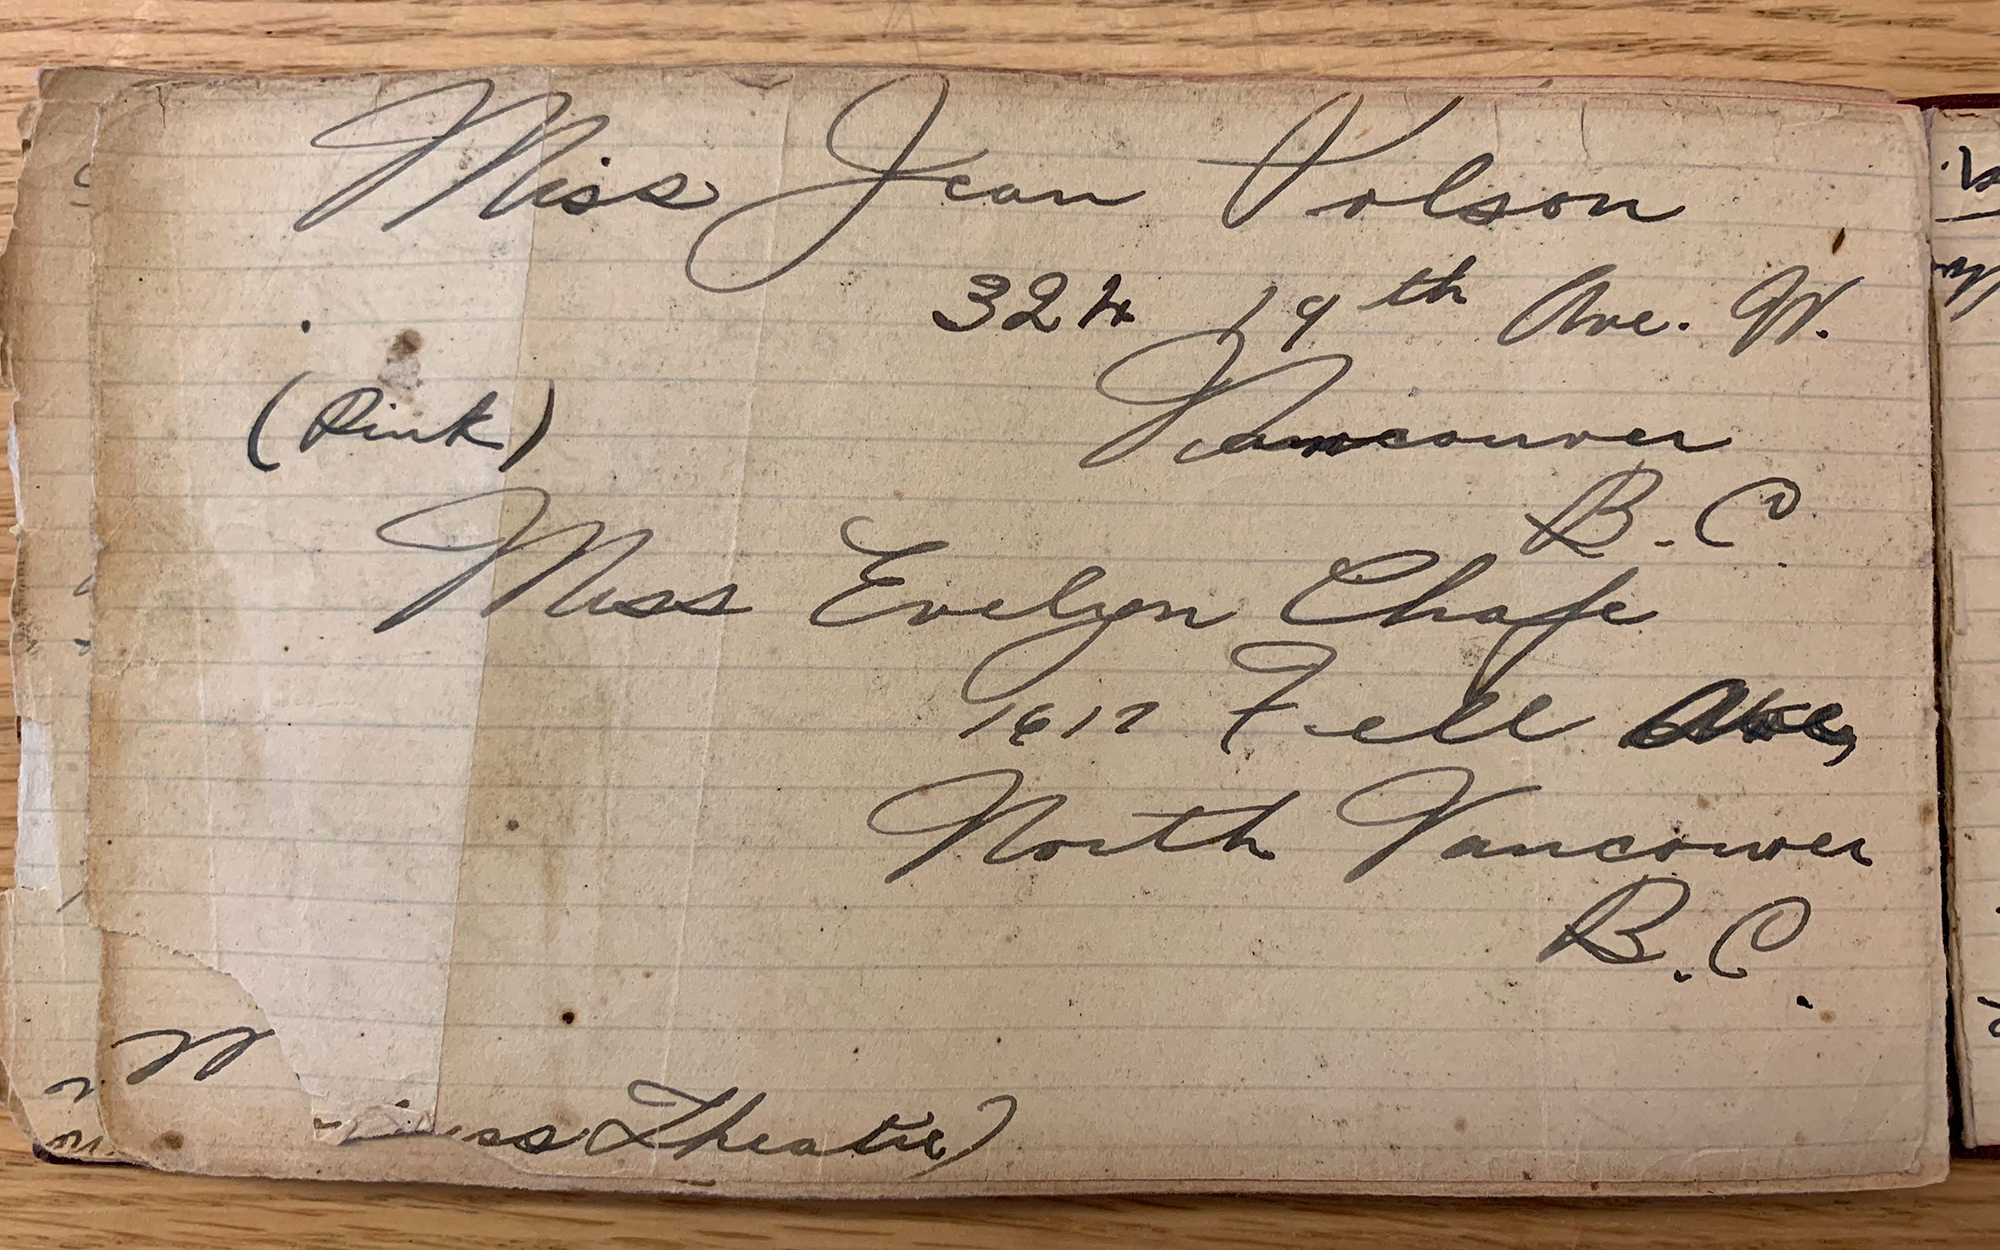 Miss Jean Volson
324 19th Ave. W.
Vancouver
(Rink)
B.C.
Miss Evelyn Chafe
1617 Fell Ave,
North Vancouver
B.C.
Theatre)